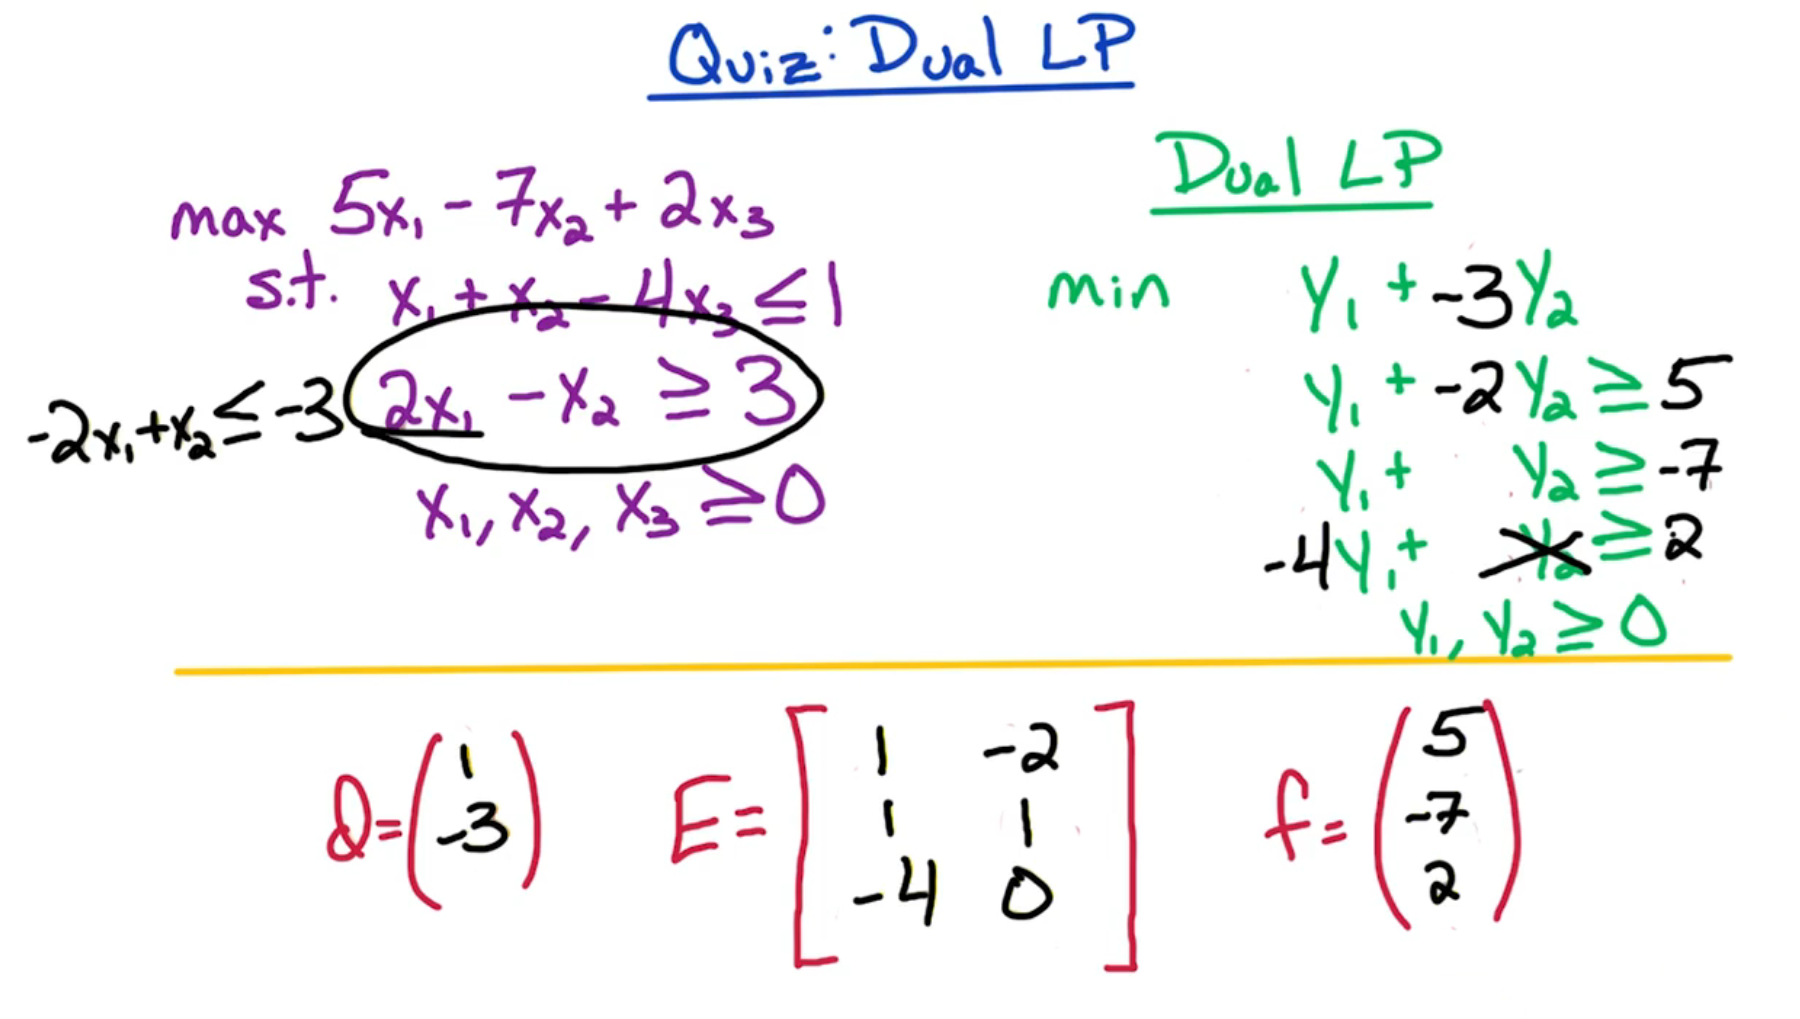 Quiz: Dual LP
max 5x₁ - 7x₂ + 2x₃
s.t. x₁ + x₂ - 4x₃ ≤ 1
-2x₁+x₂ ≤ -3
2x₁ - x₂ ≥ 3
x₁, x₂, x₃ ≥ 0
Dual LP
min y₁ + -3y₂
y₁ + -2y₂ ≥ 5
y₁ + y₂ ≥ -7
-4y₁ + y₂ ≥ 2
y₁, y₂ ≥ 0
d = (
1
-3
)
E = [
1 -2
1 1
-4 0
]
f = (
5
-7
2
)